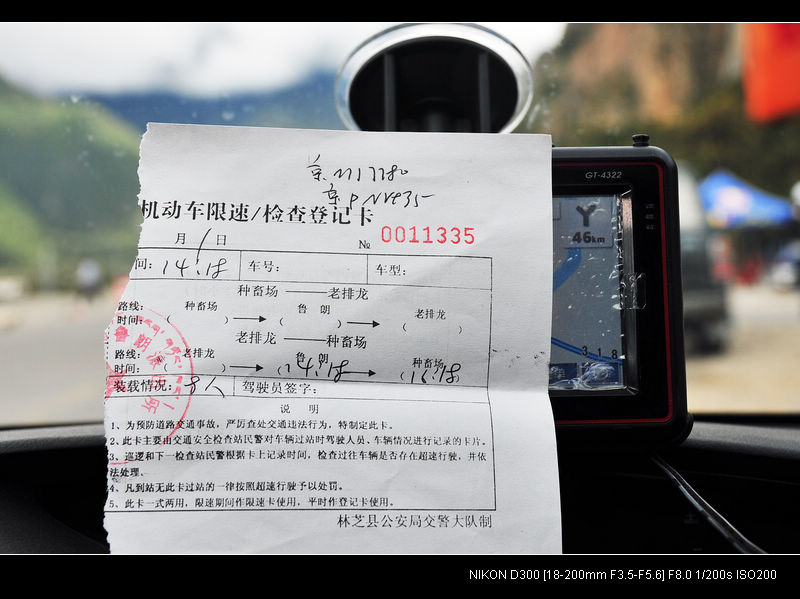 GT-4322
机动车限速/检查登记卡
月 1 日 № 0011335
间: 14:18 车号: 车型:
46km
种畜场——老排龙
路线: 种畜场 鲁朗 老排龙
时间: ( ) ( ) ( )
老排龙——种畜场
路线: 老排龙 鲁朗 种畜场
时间: ( ) (14:18 (16:18)
装载情况: 8人 驾驶员签字:
说 明
1、为预防道路交通事故，严厉查处交通违法行为，特制定此卡。
2、此卡主要由交通安全检查站民警对车辆过站时驾驶人员、车辆情况进行记录的卡片。
3、巡逻和下一检查站民警根据卡上记录时间，检查过往车辆是否存在超速行驶，并依
法处理。
4、凡到站无此卡过站的一律按照超速行驶予以处罚。
5、此卡一式两用，限速期间作限速卡使用，平时作登记卡使用。
林芝县公安局交警大队制
NIKON D300 [18-200mm F3.5-F5.6] F8.0 1/200s ISO200